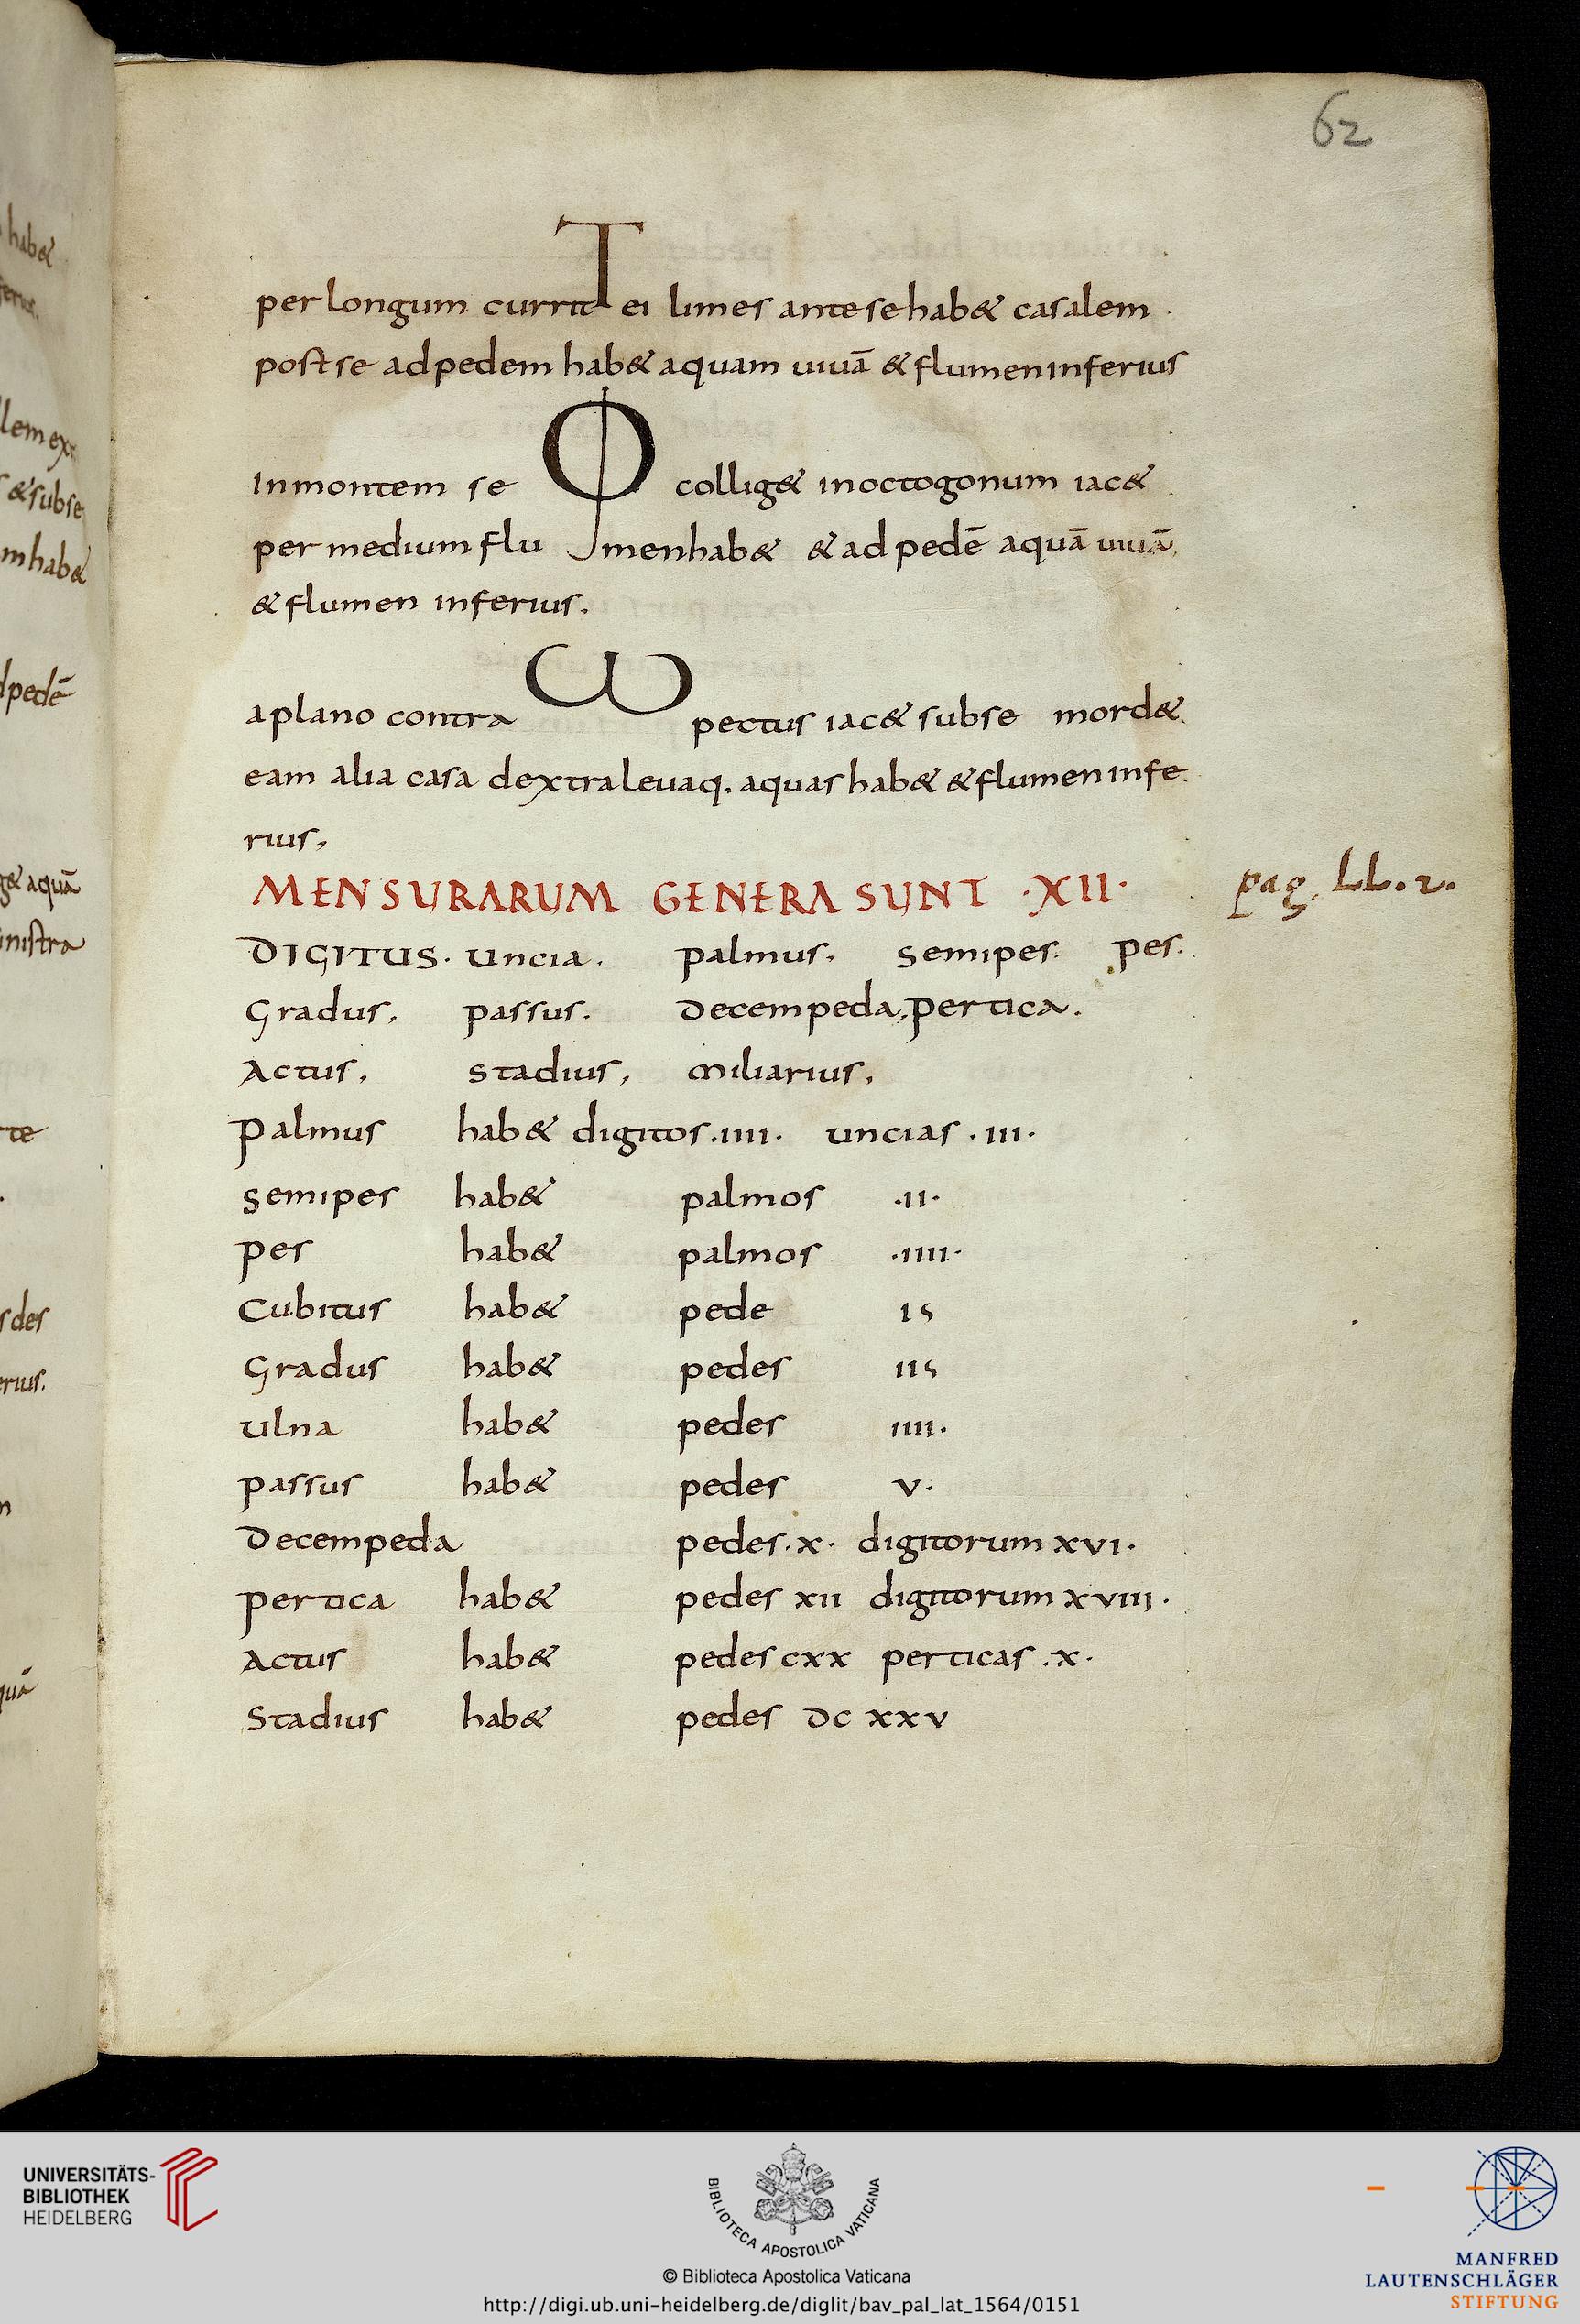 62
T
per longum currit ei limes ante se hab& casalem
post se ad pedem hab& aquam uiuā & flumen inferius
Φ
In montem se collig& in octogonum iac&
per medium flu men hab& & ad pedē aquā uiuā
& flumen inferius.
ω
a plano contra pectus iac& sub se mord&
eam alia casa dextra leuaq. aquas hab& & flumen infe
rius,
MENSURARUM GENERA SUNT ·XII·
DIGITUS. Uncia. palmus. semipes. pes.
Gradus. passus. Decempeda, pertica.
Actus. stadius, Miliarius,
Palmus hab& digitos .IIII. uncias .III.
Semipes hab& palmos ·II·
Pes hab& palmos ·IIII·
Cubitus hab& pede IS
Gradus hab& pedes IIS
Ulna hab& pedes IIII.
Passus hab& pedes V.
Decempeda pedes .X. digitorum XVI.
Pertica hab& pedes XII digitorum XVIII.
Actus hab& pedes CXX perticas .X.
Stadius hab& pedes DC XXV
pag. LL. 2.
hab&
lem ex
& subse
m hab&
pedē
& aquā
nistra
te
des
rius.
quā
UNIVERSITÄTS-
BIBLIOTHEK
HEIDELBERG
BIBLIOTECA APOSTOLICA VATICANA
© Biblioteca Apostolica Vaticana
http://digi.ub.uni-heidelberg.de/diglit/bav_pal_lat_1564/0151
MANFRED
LAUTENSCHLÄGER
STIFTUNG